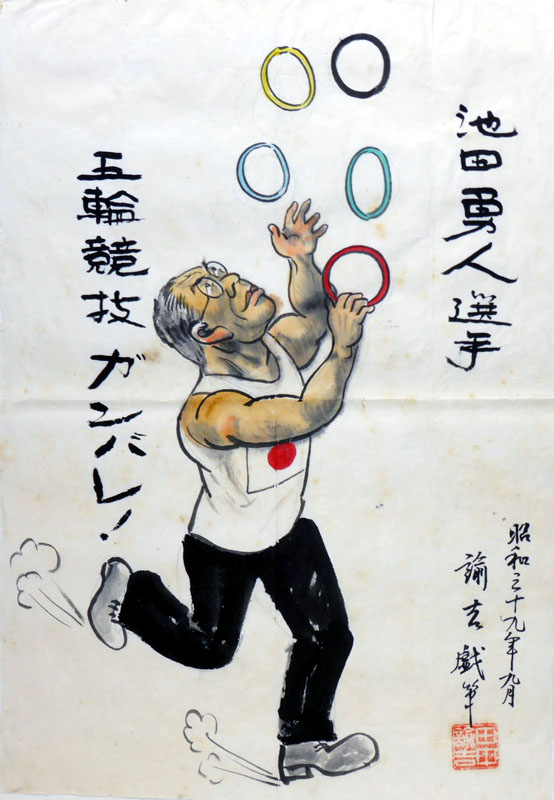 池田勇人選手
五輪競技 ガンバレ!
昭和三十九年九月
諭吉戯筆
田中
諭吉